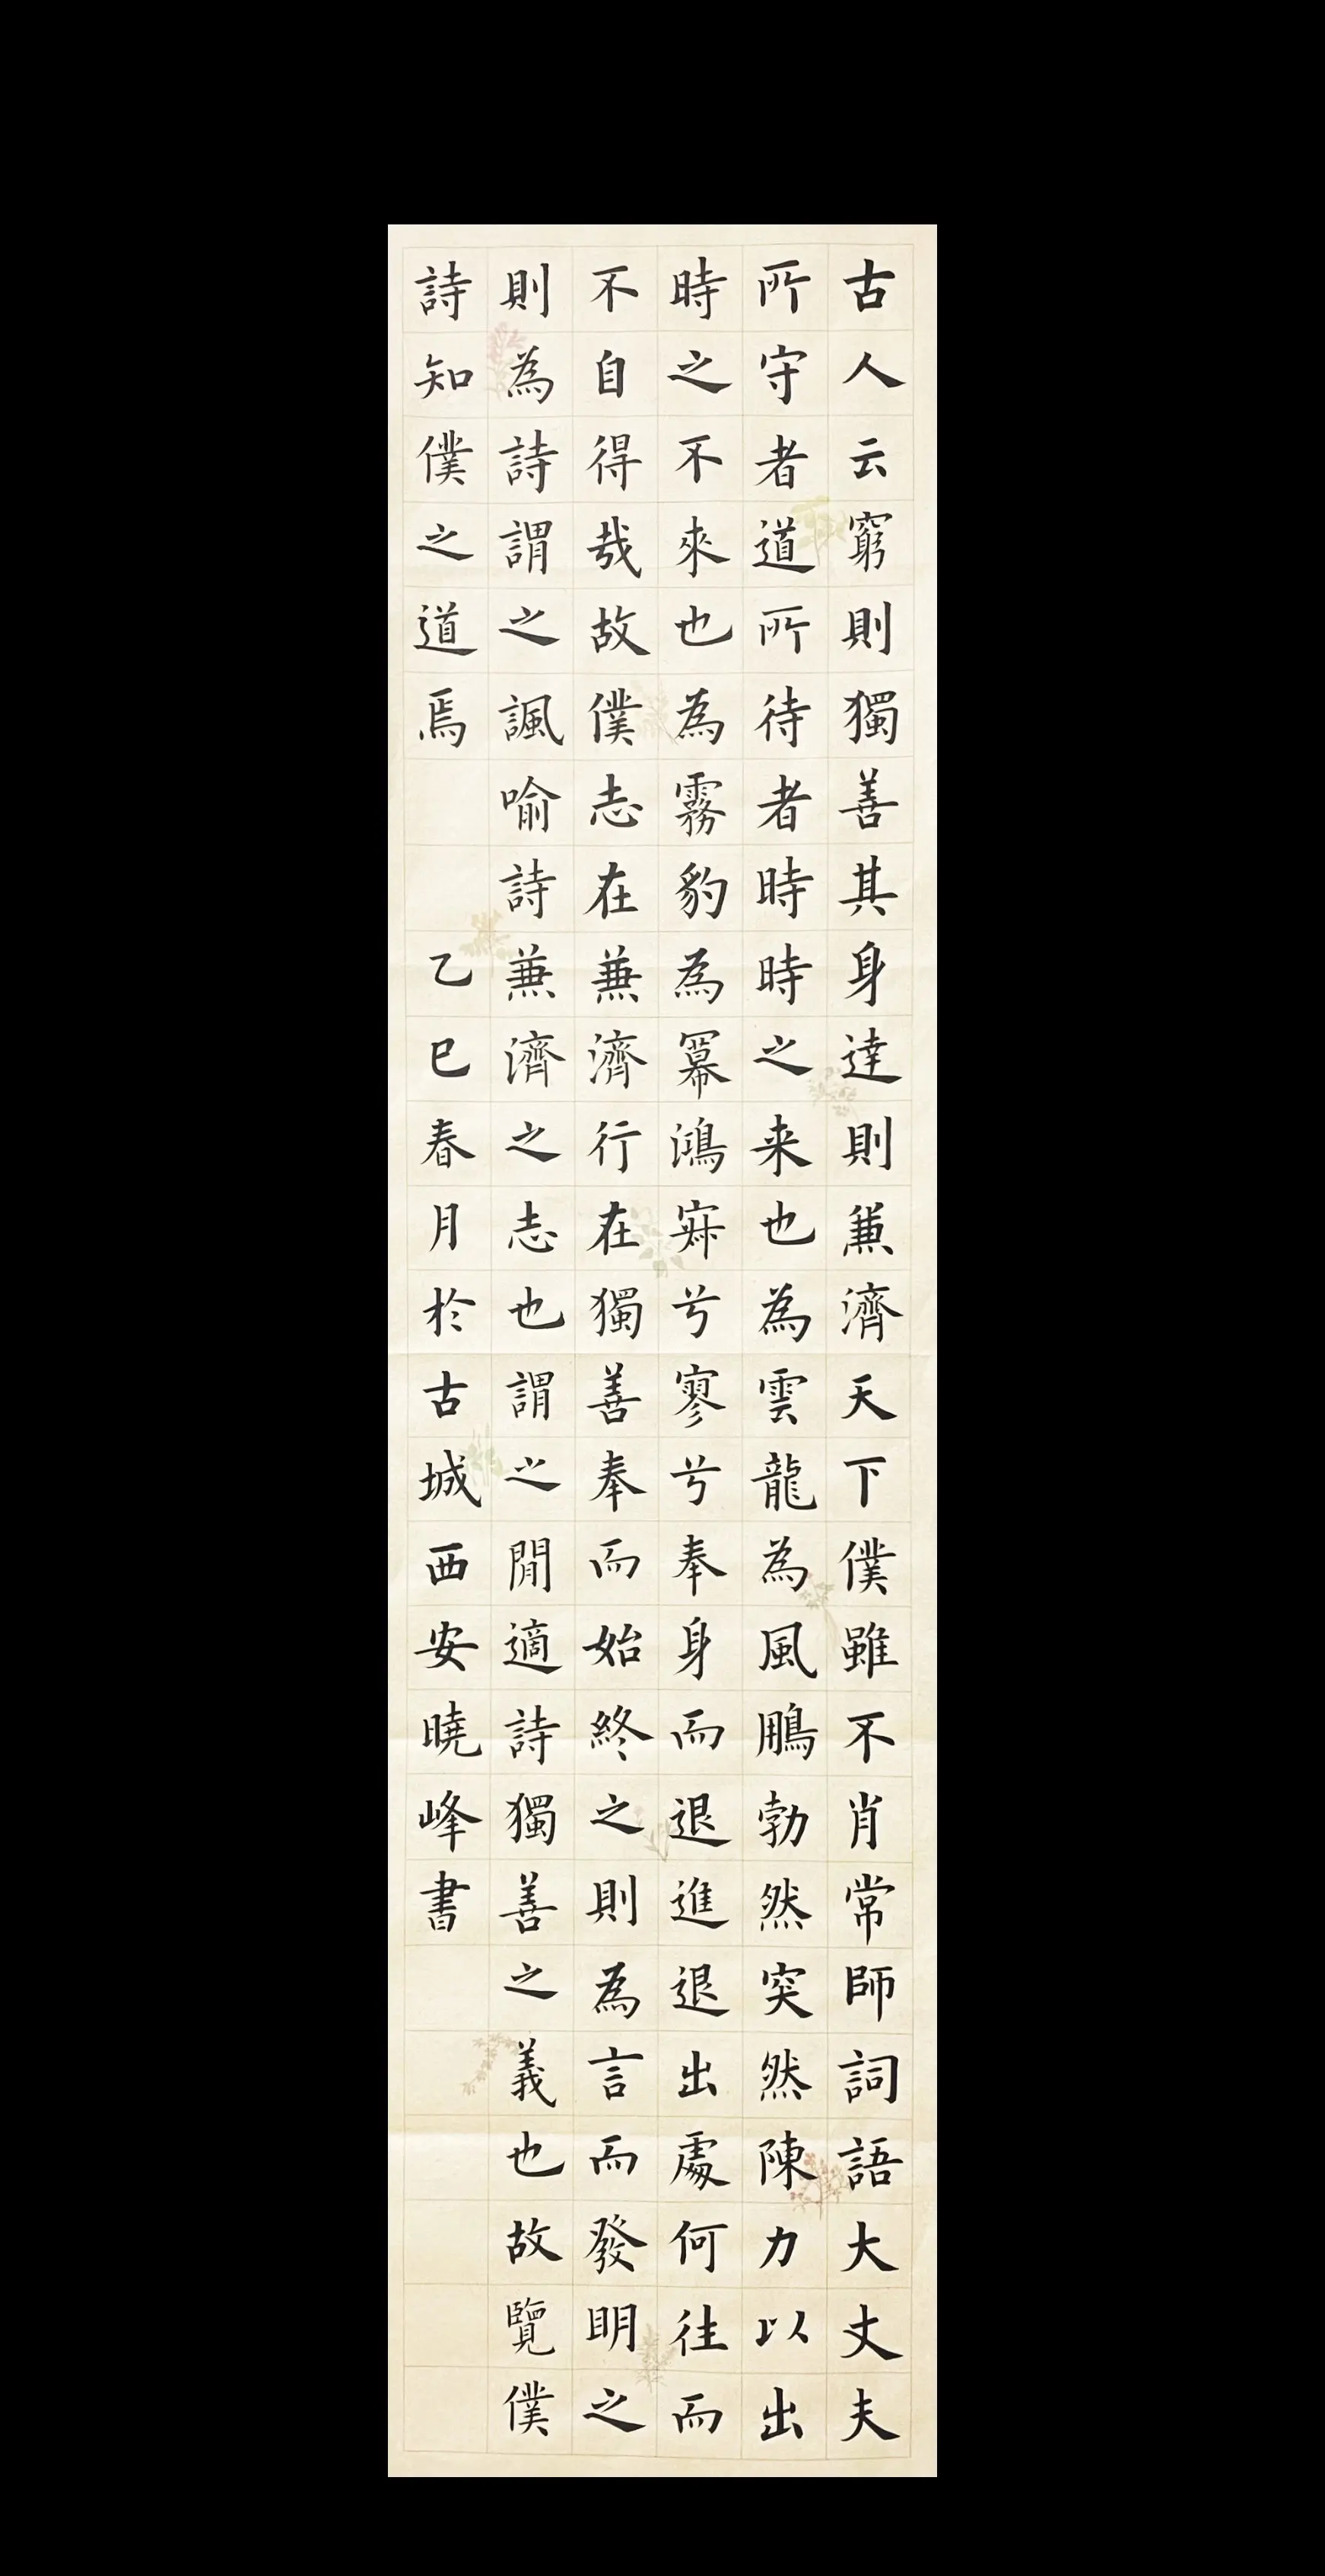 古人云窮則獨善其身達則兼濟天下僕雖不肖常師詞語大丈夫
所守者道所待者時時之来也為雲龍為風鵬勃然突然陳力以出
時之不來也為霧豹為冪鴻寂兮寥兮奉身而退進退出處何往而
不自得哉故僕志在兼濟行在獨善奉而始終之則為言而發明之
則為詩謂之諷喻詩兼濟之志也謂之閒適詩獨善之義也故覽僕
詩知僕之道焉 乙巳春月於古城西安曉峰書